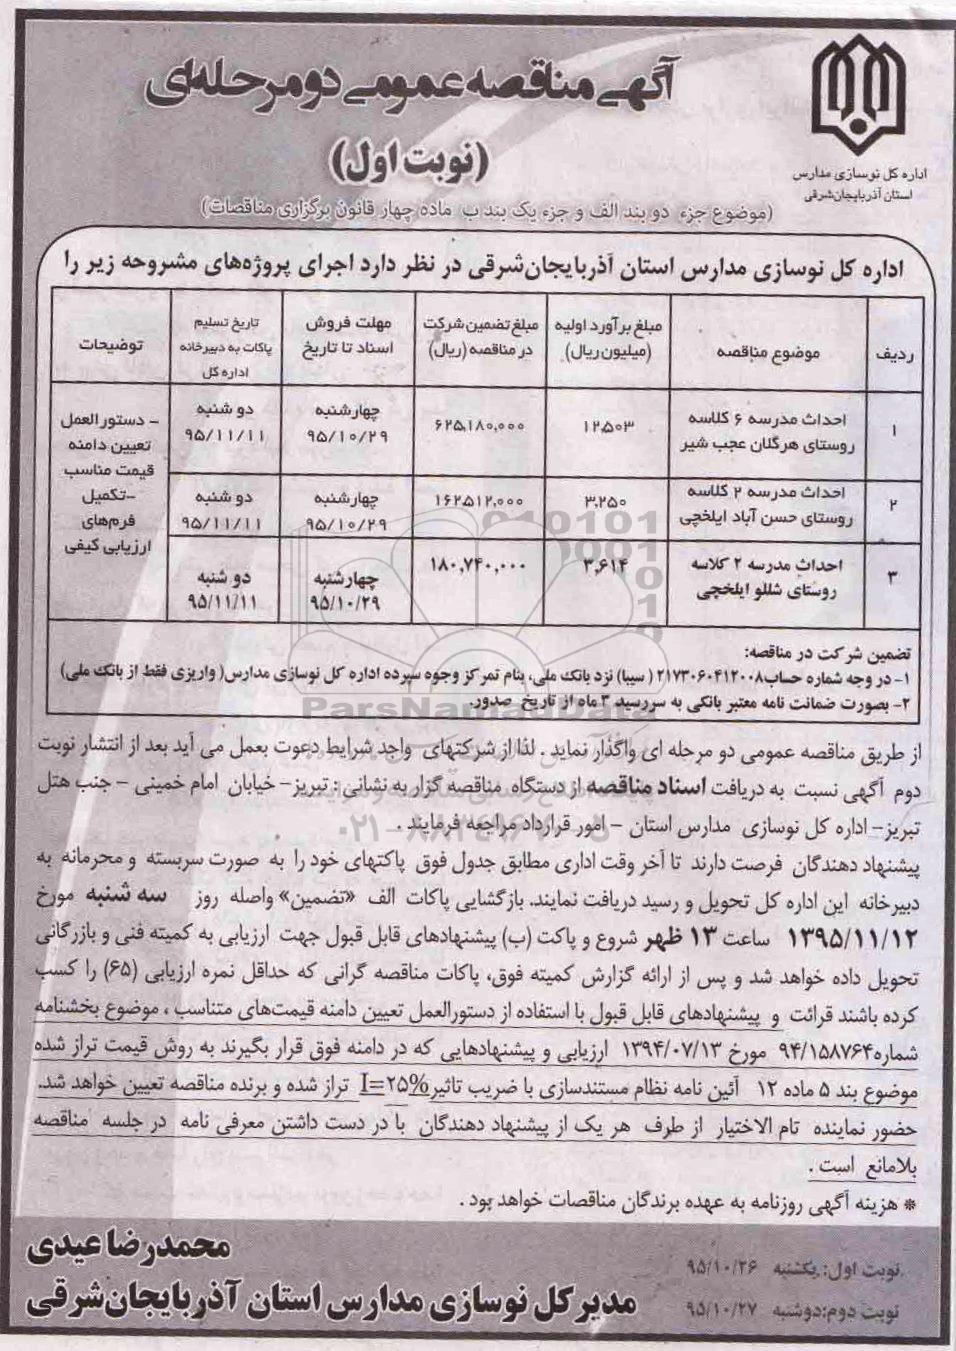 آگهی مناقصه عمومی دو مرحله‌ای
(نوبت اول)
اداره کل نوسازی مدارس
استان آذربایجان‌شرقی
(موضوع جزء دو بند الف و جزء یک بند ب ماده چهار قانون برگزاری مناقصات)
اداره کل نوسازی مدارس استان آذربایجان‌شرقی در نظر دارد اجرای پروژه‌های مشروحه زیر را
ردیف | موضوع مناقصه | مبلغ برآورد اولیه (میلیون ریال) | مبلغ تضمین شرکت در مناقصه (ریال) | مهلت فروش اسناد تا تاریخ | تاریخ تسلیم پاکات به دبیرخانه اداره کل | توضیحات
۱ | احداث مدرسه ۶ کلاسه روستای هرگلان عجب شیر | ۱۲,۵۰۳ | ۶۲۵,۱۸۰,۰۰۰ | چهارشنبه ۹۵/۱۰/۲۹ | دو شنبه ۹۵/۱۱/۱۱ | – دستورالعمل تعیین دامنه قیمت مناسب –تکمیل فرم‌های ارزیابی کیفی
۲ | احداث مدرسه ۲ کلاسه روستای حسن آباد ایلخچی | ۳,۲۵۰ | ۱۶۲,۵۱۲,۰۰۰ | چهارشنبه ۹۵/۱۰/۲۹ | دو شنبه ۹۵/۱۱/۱۱
۳ | احداث مدرسه ۲ کلاسه روستای شللو ایلخچی | ۳,۶۱۴ | ۱۸۰,۷۴۰,۰۰۰ | چهارشنبه ۹۵/۱۰/۲۹ | دو شنبه ۹۵/۱۱/۱۱
تضمین شرکت در مناقصه:
۱- در وجه شماره حساب۲۱۷۳۰۶۰۴۱۲۰۰۸ ( سیبا) نزد بانک ملی، بنام تمرکز وجوه سپرده اداره کل نوسازی مدارس( واریزی فقط از بانک ملی)
۲- بصورت ضمانت نامه معتبر بانکی به سررسید ۳ ماه از تاریخ صدور.
ParsNamadData
۰۲۱-۸۸۳۴۹۶۷۰-۵
از طریق مناقصه عمومی دو مرحله ای واگذار نماید . لذا از شرکتهای واجد شرایط دعوت بعمل می آید بعد از انتشار نوبت
دوم آگهی نسبت به دریافت اسناد مناقصه از دستگاه مناقصه گزار به نشانی : تبریز– خیابان امام خمینی – جنب هتل
تبریز– اداره کل نوسازی مدارس استان – امور قرارداد مراجعه فرمایند .
پیشنهاد دهندگان فرصت دارند تا آخر وقت اداری مطابق جدول فوق پاکتهای خود را به صورت سربسته و محرمانه به
دبیرخانه این اداره کل تحویل و رسید دریافت نمایند. بازگشایی پاکات الف «تضمین» واصله روز سه شنبه مورخ
۱۳۹۵/۱۱/۱۲ ساعت ۱۳ ظهر شروع و پاکت (ب) پیشنهادهای قابل قبول جهت ارزیابی به کمیته فنی و بازرگانی
تحویل داده خواهد شد و پس از ارائه گزارش کمیته فوق، پاکات مناقصه گرانی که حداقل نمره ارزیابی (۶۵) را کسب
کرده باشند قرائت و پیشنهادهای قابل قبول با استفاده از دستورالعمل تعیین دامنه قیمت‌های متناسب ، موضوع بخشنامه
شماره۹۴/۱۵۸۷۶۴ مورخ ۱۳۹۴/۰۷/۱۳ ارزیابی و پیشنهادهایی که در دامنه فوق قرار بگیرند به روش قیمت تراز شده
موضوع بند ۵ ماده ۱۲ آئین نامه نظام مستندسازی با ضریب تاثیر I=۲۵% تراز شده و برنده مناقصه تعیین خواهد شد.
حضور نماینده تام الاختیار از طرف هر یک از پیشنهاد دهندگان با در دست داشتن معرفی نامه در جلسه مناقصه
بلامانع است .
* هزینه آگهی روزنامه به عهده برندگان مناقصات خواهد بود .
نوبت اول: یکشنبه ۹۵/۱۰/۲۶
نوبت دوم:دوشنبه ۹۵/۱۰/۲۷
محمدرضا عیدی
مدیرکل نوسازی مدارس استان آذربایجان‌شرقی